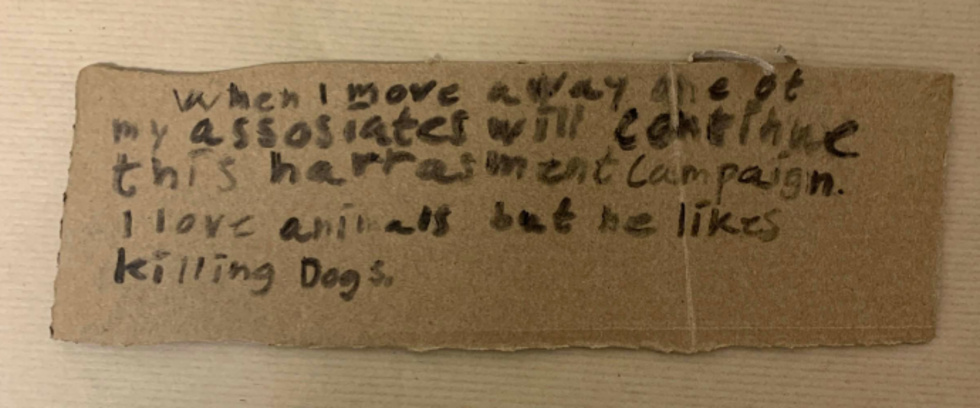 When I move away one of
my assosiates will continue
this harrasment Campaign.
I love animals but he likes
killing Dogs.